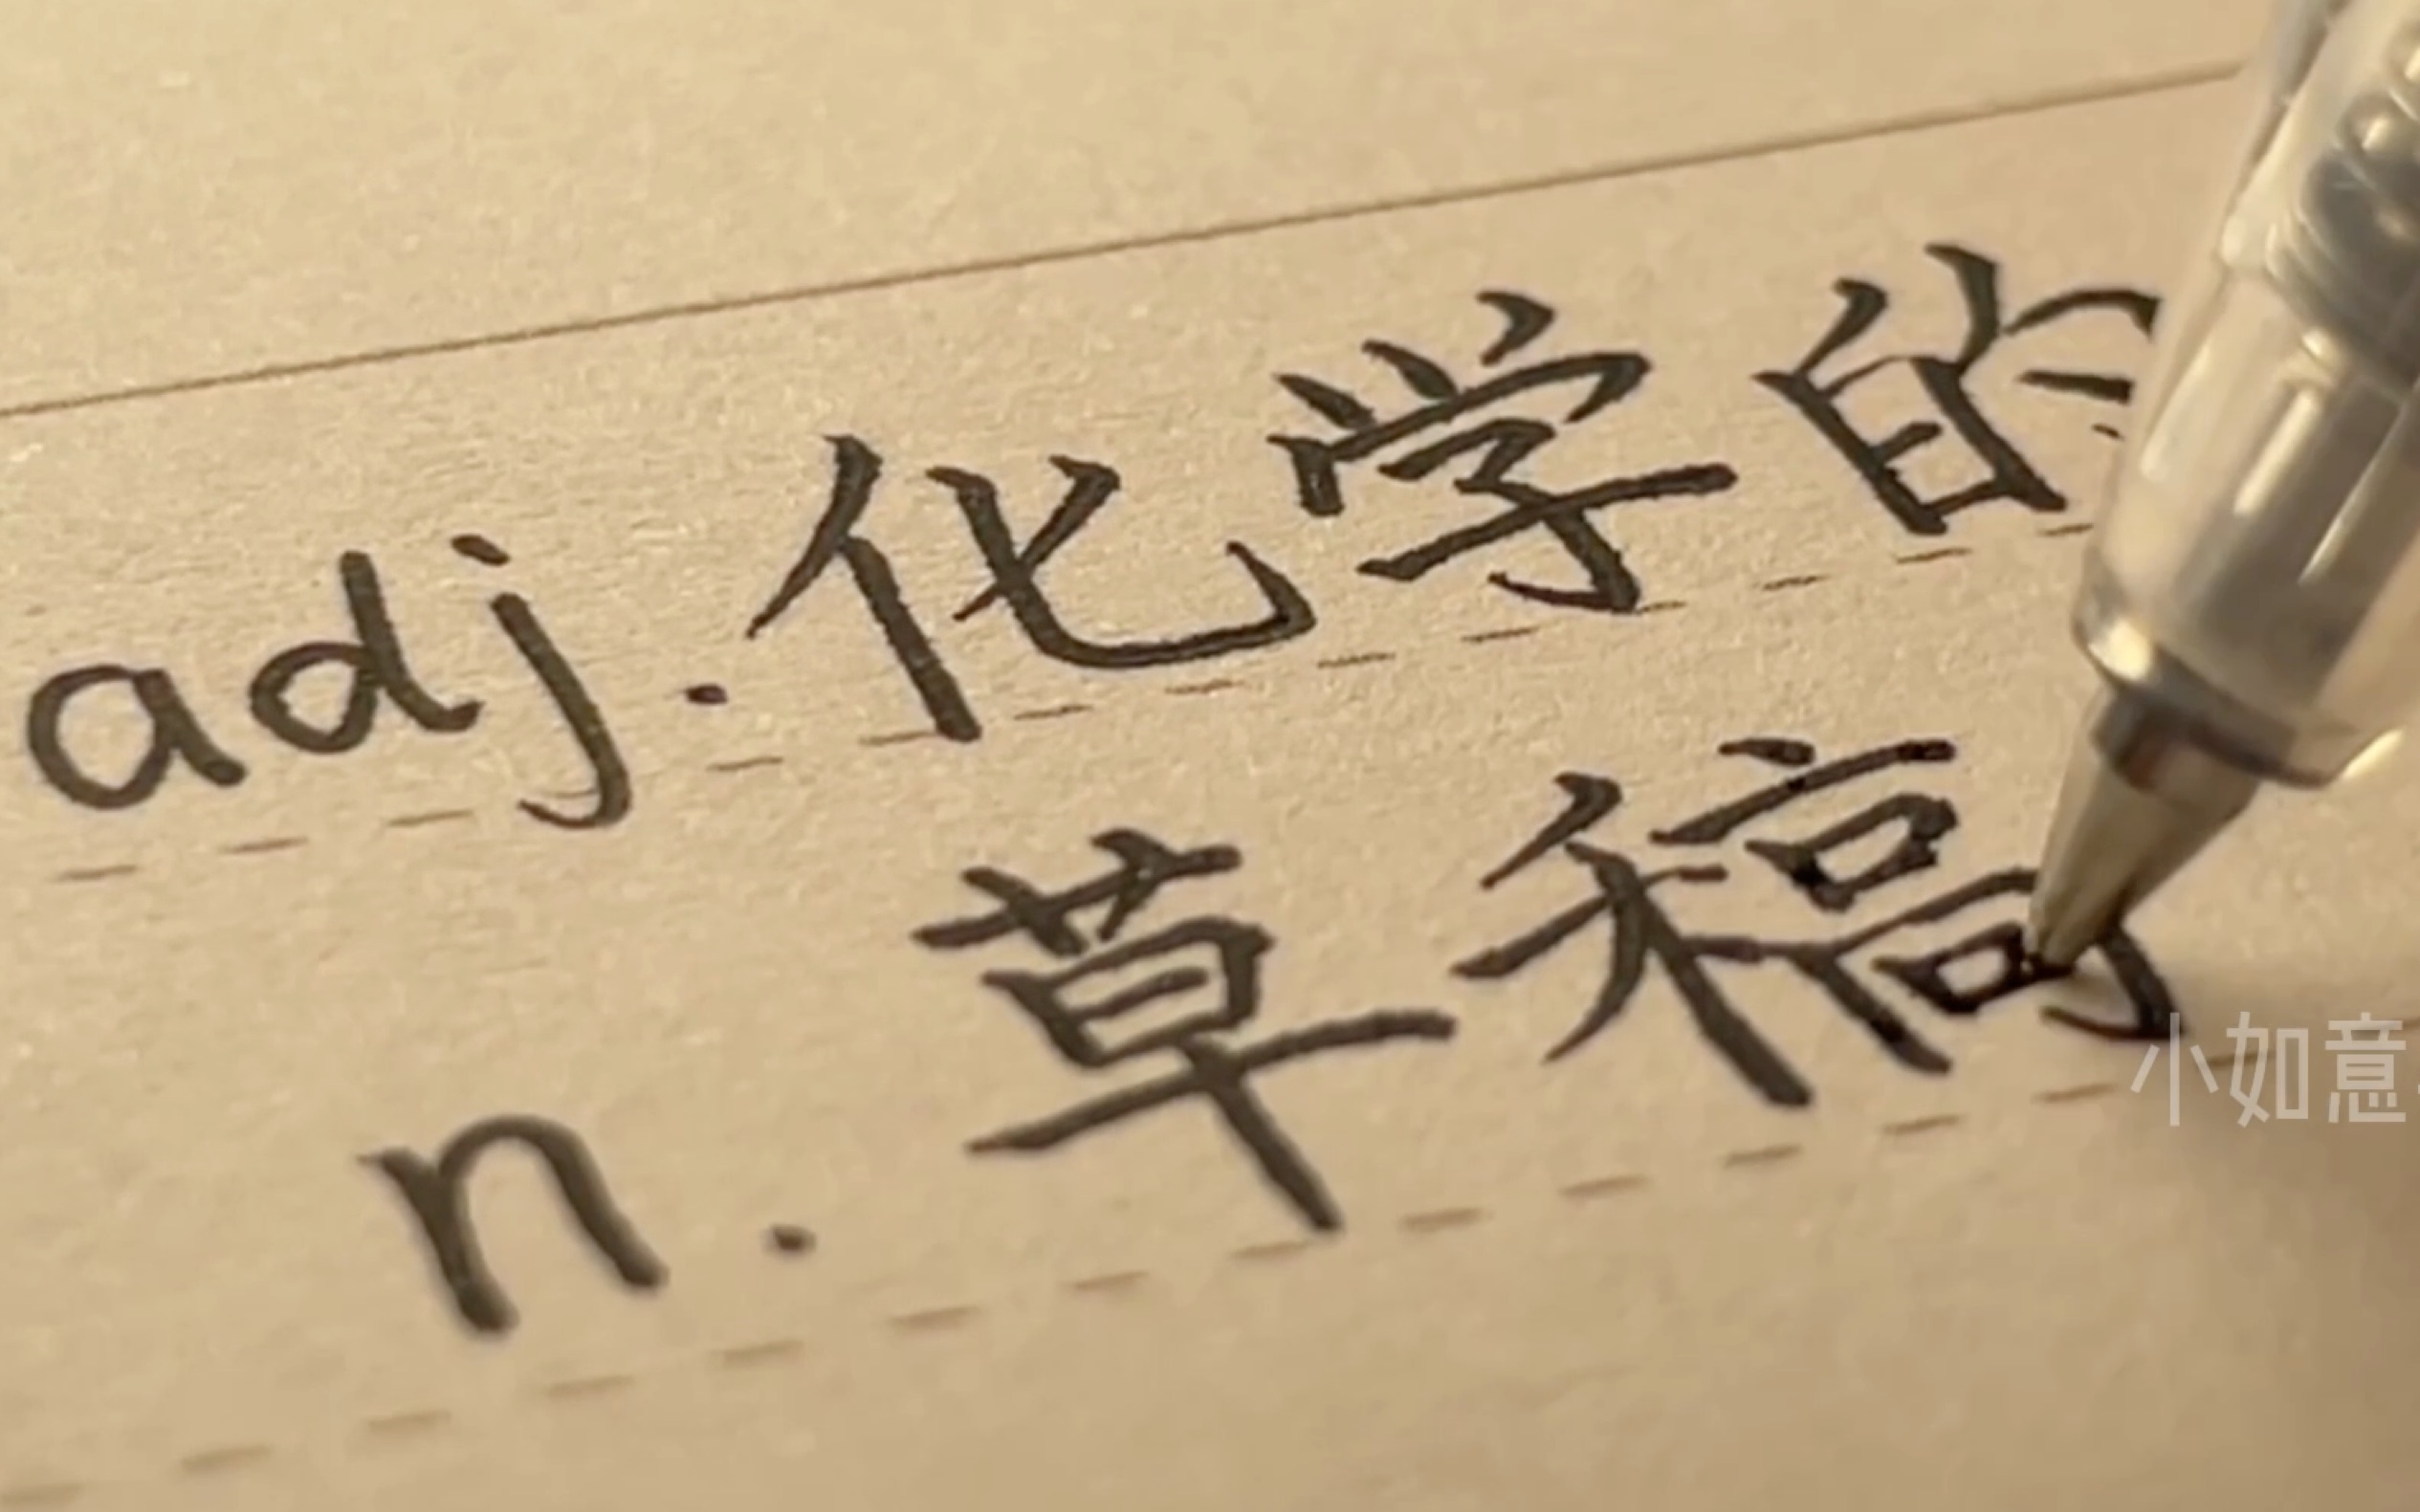 adj.化学的
n.草稿
小如意